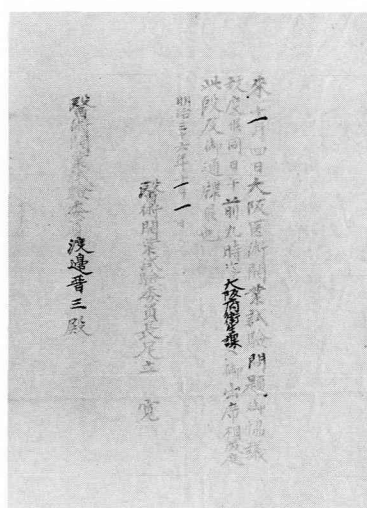 來十一月四日大阪医術開業試験問題御協議
致度候間同日午前九時迄大阪府衛生課ヘ御出席相成度
此段及御通牒候也
明治三十六年十一月
醫術開業試験委員長足立 寛
醫術開業試験委員渡邉晋三殿